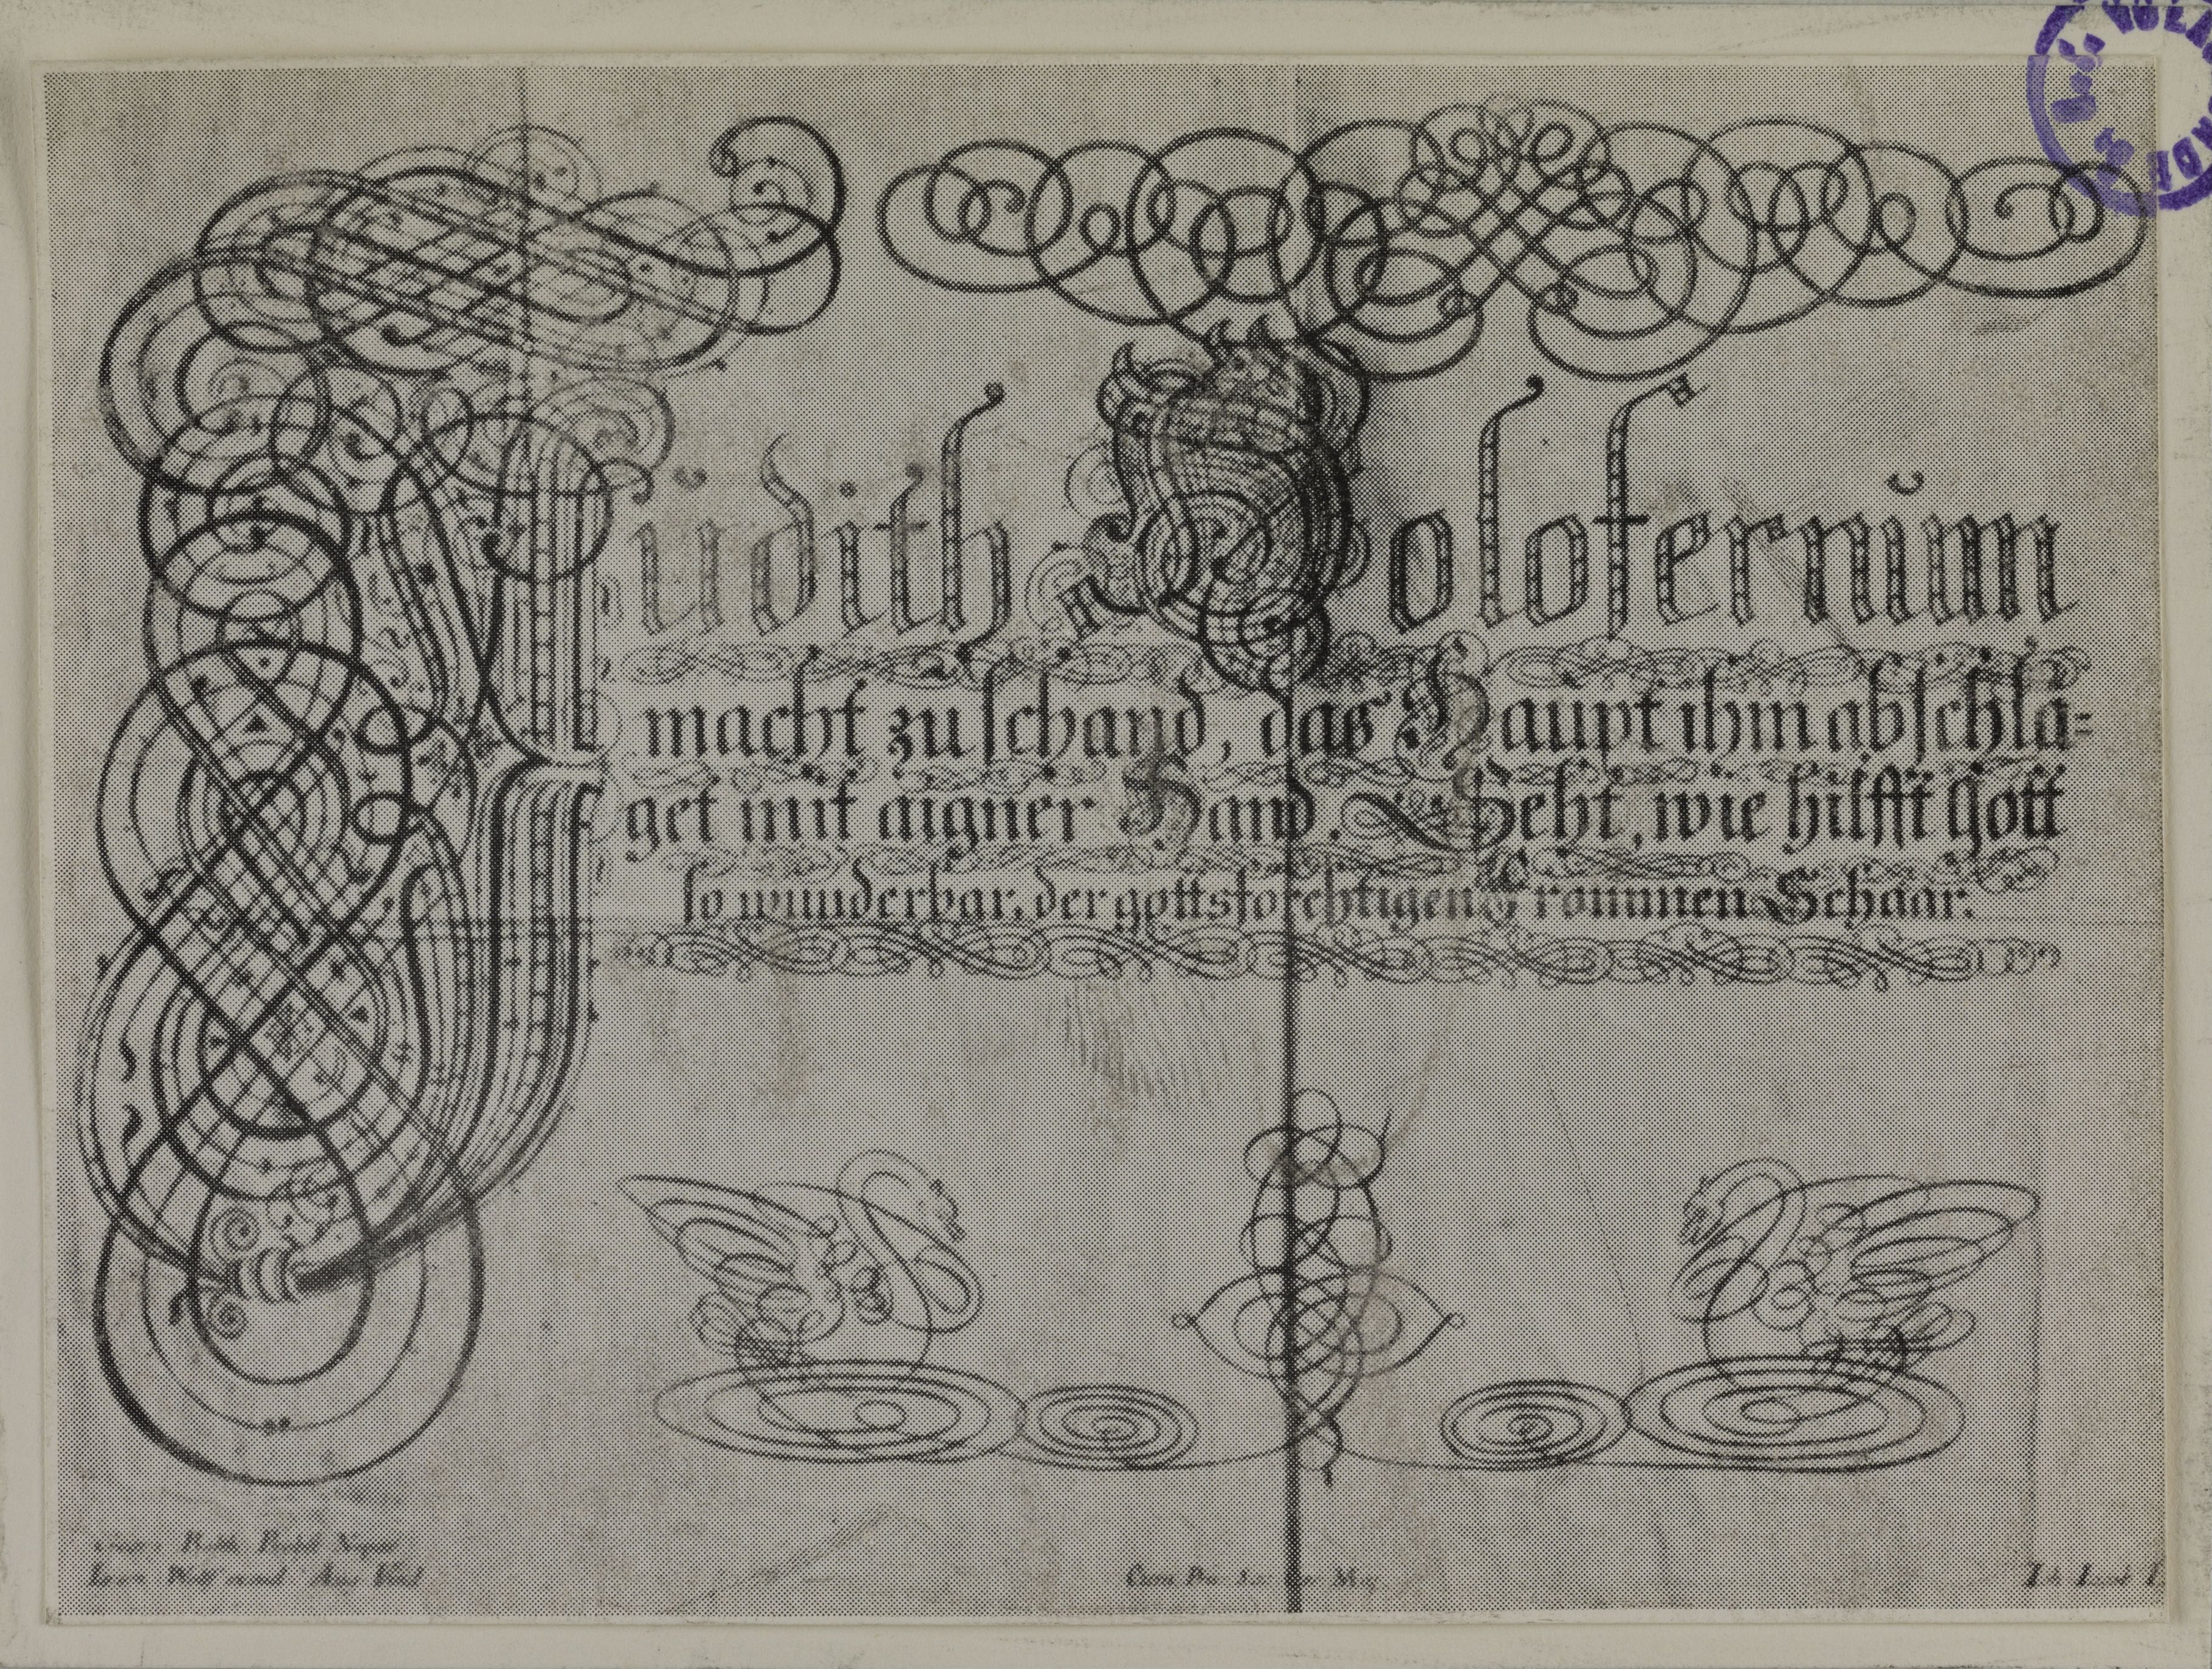 Judith Holofernům
macht zu schand, das Haupt ihm abschla=
get mit aigner Hand. Seht, wie hilfft Gott
so wunderbar, der gottsforchtigen Frommen Schaar.
Cum